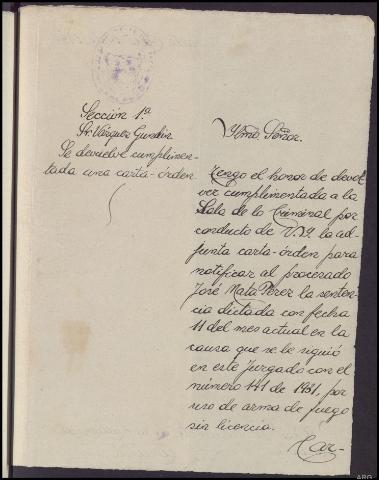 Sección 1ª
Sr. Vázquez Gundín
Se devuelve cumplimen-
tada una carta-órden
Ylmo. Señor.
Tengo el honor de devol
ver cumplimentada a la
Sala de lo Criminal por
conducto de V.I. la ad-
junta carta-órden para
notificar al procesado
José Mata Pérez la senten-
cia dictada con fecha
11 del mes actual en la
causa que se le siguió
en este Juzgado con el
número 141 de 1931, por
uso de arma de fuego
sin licencia.
Car-
ARG